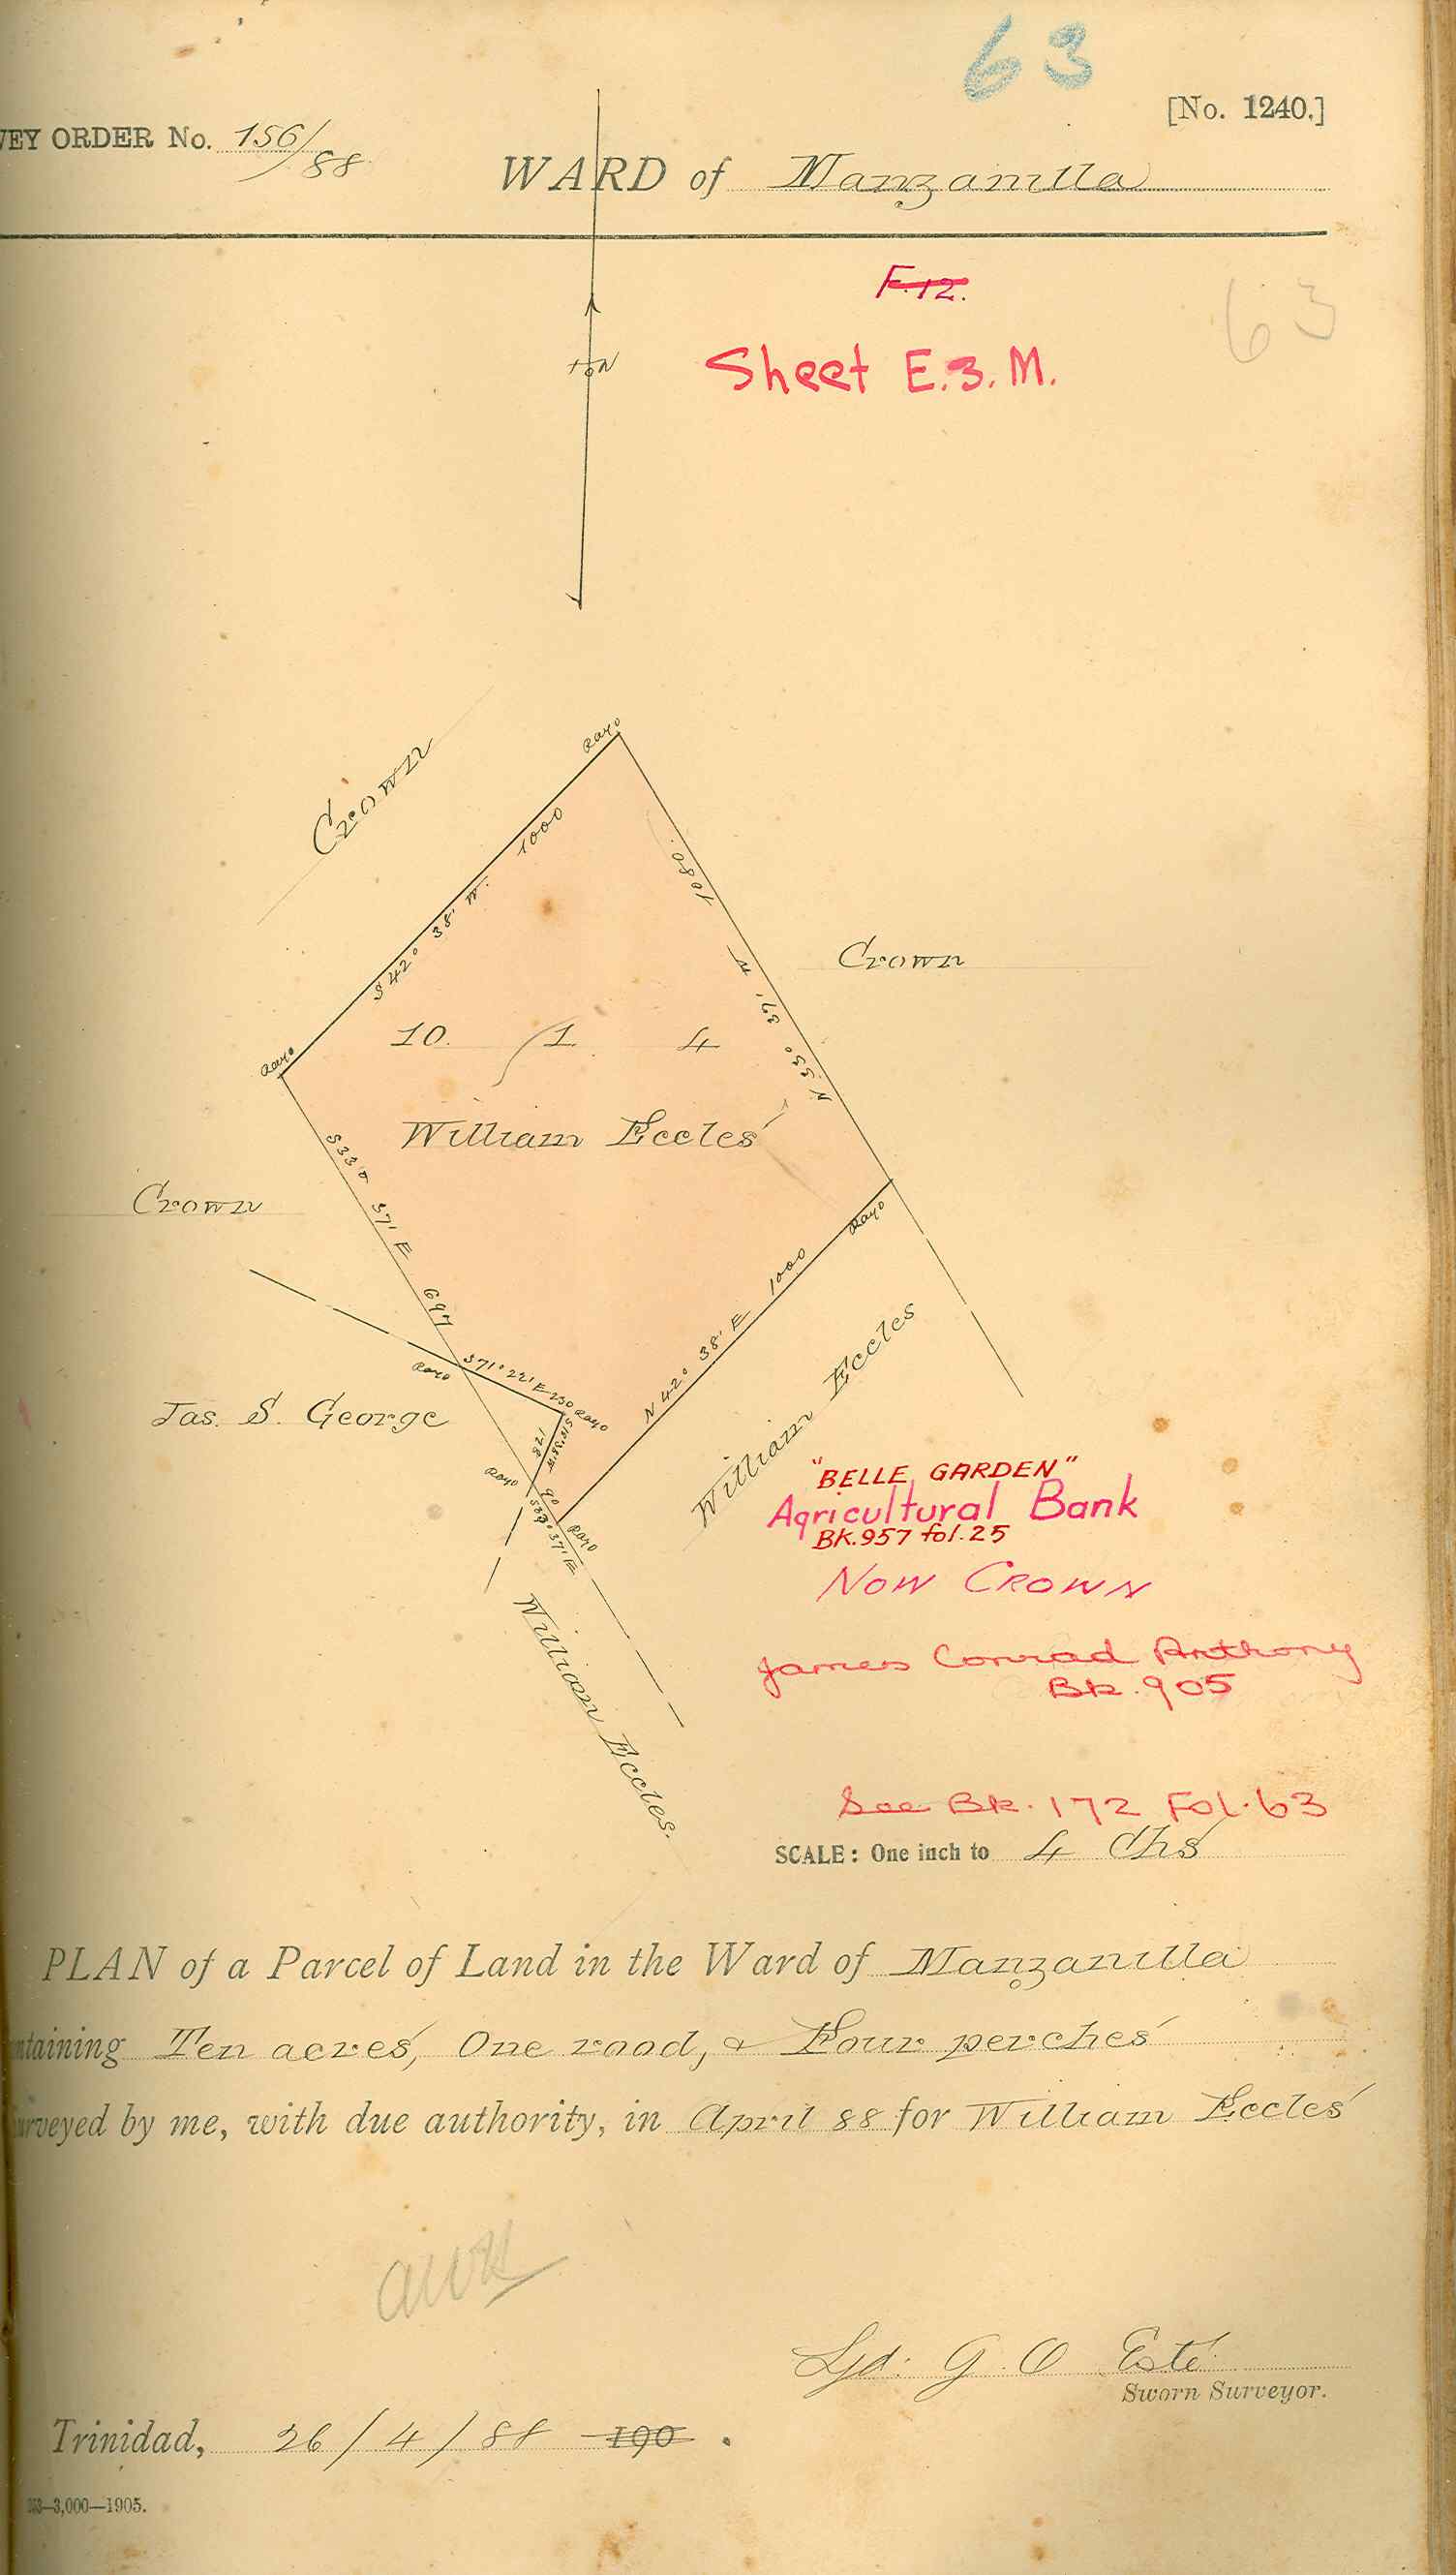 63
[No. 1240.]
VEY ORDER No. 156/88
WARD of Manzanilla
F.12.
63
Sheet E.3.M.
Rayo
Crown
S 42° 38' W. 1000
1080.
N. 33° 37' W
Crown
Rayo
10. 1 4
William Eccles
S 33° 37' E 697
Crown
Rayo
N 42° 38' E 1000
William Eccles
Rayo
S 71° 22' E 230
Rayo
Jas. S. George
Rayo
90
S 33° 37' E
Rayo
William Eccles.
"BELLE GARDEN"
Agricultural Bank
BK.957 fol.25
NOW CROWN
James Conrad Anthony
Bk.905
See Bk.172 Fol.63
SCALE: One inch to 4 Chs
PLAN of a Parcel of Land in the Ward of Manzanilla
ntaining Ten acres, One rood, & Four perches
urveyed by me, with due authority, in April 88 for William Eccles
Sgd: G. O Esté
Sworn Surveyor.
Trinidad, 26/4/88 190 .
3,000—1905.